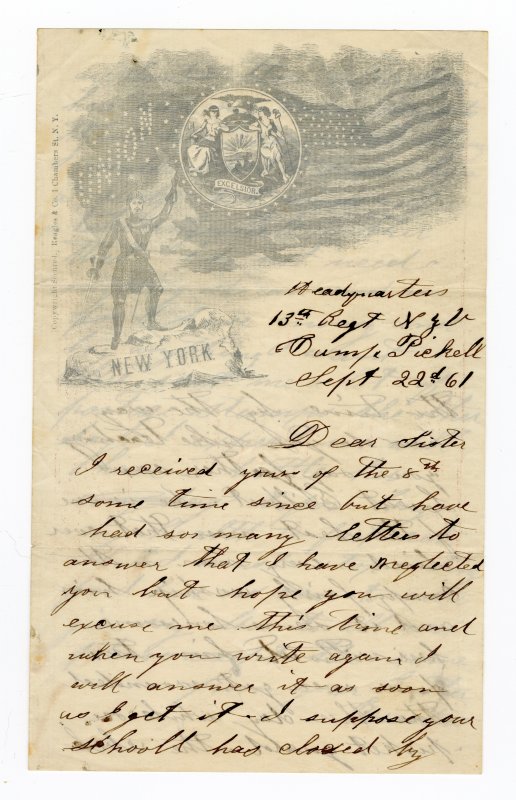 Copywright Secured, Reagles & Co. 1 Chambers St. N. Y.
EXCELSIOR.
NEW YORK
Headquarters
13th Regt N Y V
Camp Pickell
Sept 22d 61
Dear Sister
I received yours of the 8th
some time since but have
had so many letters to
answer that I have neglected
you but hope you will
excuse me this time and
when you write again I
will answer it as soon
as I get it - I suppose your
schooll has closed by